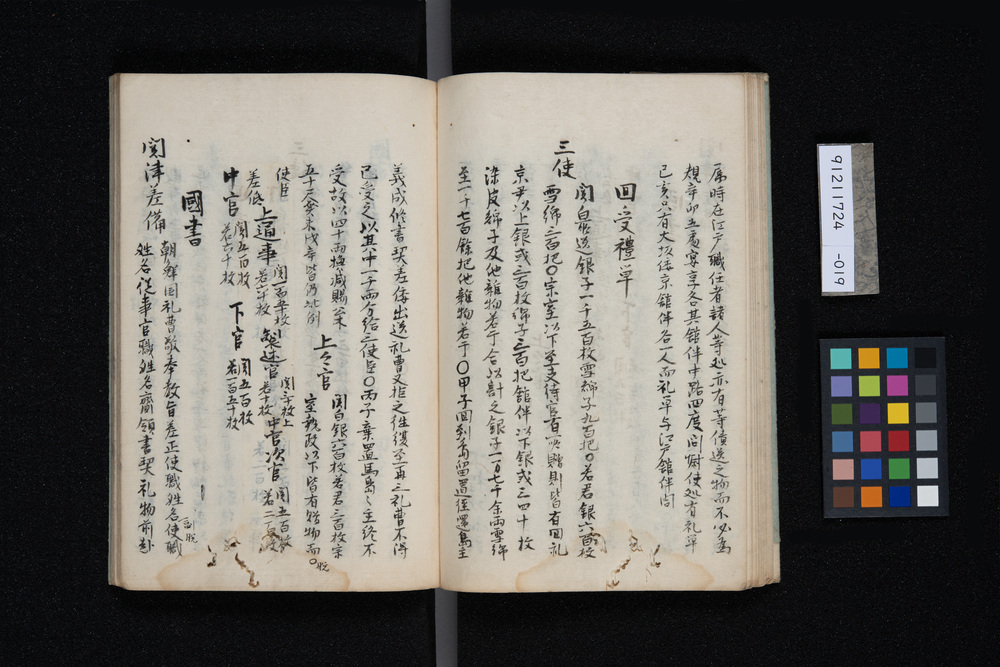 屬時在江戶職任者諸人等処亦有等債送之物而不必為
規辛卯五處宴享各其館伴中路四度問慰使処有礼單
己亥只有大坂倭京館伴各一人而礼單与江戶館伴同
回受禮單
三使
関白前送銀子一千五百枚雪綿子九百把〇若君銀六百枚
雪綿三百把〇宗室以下至支待官有所贈則皆有回礼
京尹以上銀或三百枚綿子三百把館伴以下銀或三四十枚
染皮綿子及他雜物若干合以計之銀子一万七千余兩雪綿
至一千七百餘把他雜物若干〇甲子回到馬島留置徑還島主
義成修書契差倭出送礼曹又拒之往復至再三礼曹不得
已受之以其中一千兩分給三使臣〇丙子棄置馬島島主終不
受故以四十兩換減賜公米
五十尺癸未戊辰皆仍此例
上上官
関白銀二百枚若君三百枚宗
室執政以下皆有贈物而〇脫
使臣
差低
上通事
関一百五十枚
若五十枚
製述官
関三十枚上
若十枚
中官次官
関五百枚
若二百枚
中官
関五百枚
若六十枚
下官
関五百枚
若百五十枚
國書
関津差備
朝鮮国礼曹敬奉教旨差正使職姓名使職
副脫
姓名從事官職姓名齎領書契礼物前赴
91211724
-019